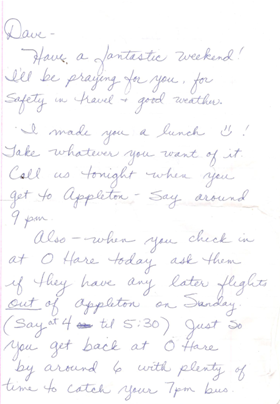 Dave -
Have a fantastic weekend!
I'll be praying for you, for
safety in travel + good weather.
I made you a lunch ☺!
Take whatever you want of it.
Call us tonight when you
get to Appleton - Say around
9 pm.
Also - when you check in
at O Hare today ask them
if they have any later flights
out of Appleton on Sunday.
(Say at 4 til 5:30) Just so
you get back at O Hare
by around 6 with plenty of
time to catch your 7pm bus.